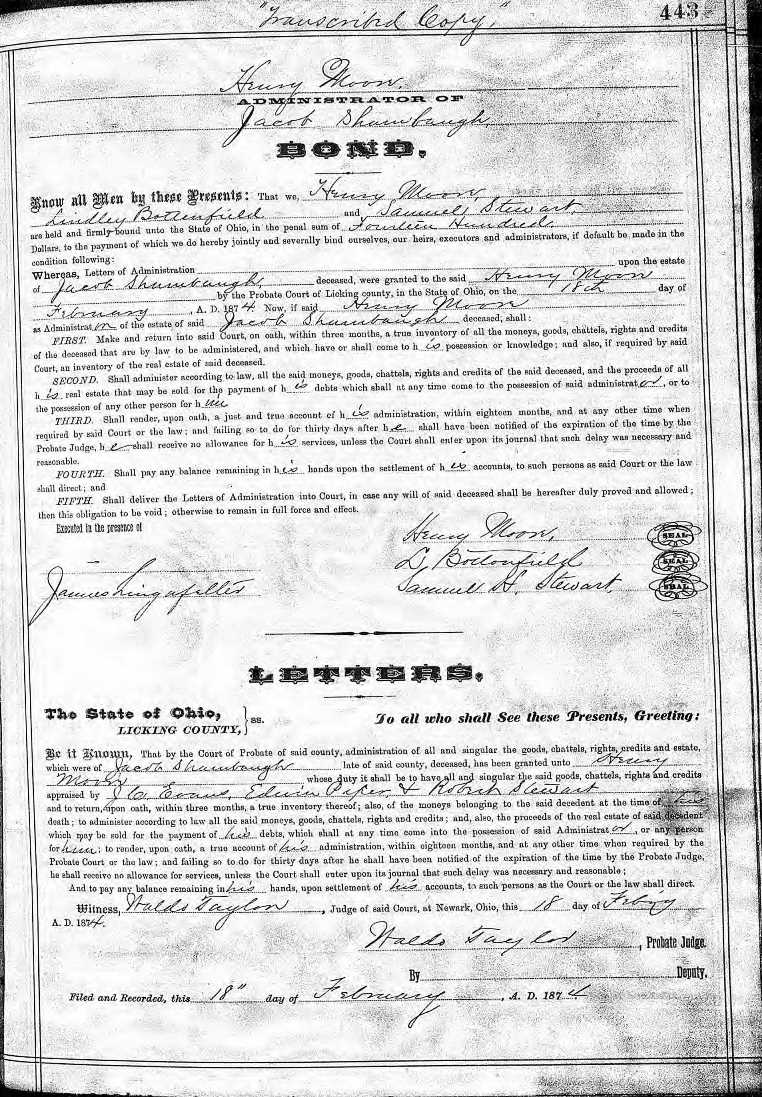 "Transcribed Copy"
443
Henry Moon.
ADMINISTRATOR OF
Jacob Shambaugh.
BOND.
Know all Men by these Presents: That we, Henry Moon,
Lindley Bottenfield and Samuel Stewart.
are held and firmly bound unto the State of Ohio, in the penal sum of Fourteen Hundred.
Dollars, to the payment of which we do hereby jointly and severally bind ourselves, our heirs, executors and administrators, if default be made in the
condition following:
Whereas, Letters of Administration upon the estate
of Jacob Shambaugh, deceased, were granted to the said Henry Moon
by the Probate Court of Licking county, in the State of Ohio, on the 18th day of
February, A. D. 1874 Now, if said Henry Moon
as Administrator of the estate of said Jacob Shambaugh deceased, shall:
FIRST. Make and return into said Court, on oath, within three months, a true inventory of all the moneys, goods, chattels, rights and credits
of the deceased that are by law to be administered, and which have or shall come to his possession or knowledge; and also, if required by said
Court, an inventory of the real estate of said deceased.
SECOND. Shall administer according to law, all the said moneys, goods, chattels, rights and credits of the said deceased, and the proceeds of all
his real estate that may be sold for the payment of his debts which shall at any time come to the possession of said administrator, or to
the possession of any other person for him
THIRD. Shall render, upon oath, a just and true account of his administration, within eighteen months, and at any other time when
required by said Court or the law; and failing so to do for thirty days after he shall have been notified of the expiration of the time by the
Probate Judge, he shall receive no allowance for his services, unless the Court shall enter upon its journal that such delay was necessary and
reasonable.
FOURTH. Shall pay any balance remaining in his hands upon the settlement of his accounts, to such persons as said Court or the law
shall direct; and
FIFTH. Shall deliver the Letters of Administration into Court, in case any will of said deceased shall be hereafter duly proved and allowed;
then this obligation to be void; otherwise to remain in full force and effect.
Executed in the presence of
Henry Moon, SEAL
L. Bottonfield SEAL
James Lingafelter Samuel H. Stewart. SEAL
LETTERS.
The State of Ohio,
LICKING COUNTY, ss. To all who shall See these Presents, Greeting:
Be it Known, That by the Court of Probate of said county, administration of all and singular the goods, chattels, rights, credits and estate,
which were of Jacob Shambaugh late of said county, deceased, has been granted unto Henry
Moon whose duty it shall be to have all and singular the said goods, chattels, rights and credits
appraised by J. C. Evans, Edwin Piper, & Robert Stewart
and to return, upon oath, within three months, a true inventory thereof; also, of the moneys belonging to the said decedent at the time of his
death; to administer according to law all the said moneys, goods, chattels, rights and credits; and, also, the proceeds of the real estate of said decedent
which may be sold for the payment of his debts, which shall at any time come into the possession of said Administrator, or any person
for him; to render, upon oath, a true account of his administration, within eighteen months, and at any other time when required by the
Probate Court or the law; and failing so to do for thirty days after he shall have been notified of the expiration of the time by the Probate Judge,
he shall receive no allowance for services, unless the Court shall enter upon its journal that such delay was necessary and reasonable;
And to pay any balance remaining in his hands, upon settlement of his accounts, to such persons as the Court or the law shall direct.
Witness, Waldo Taylor, Judge of said Court, at Newark, Ohio, this 18 day of Feb'ry
A. D. 1874.
Waldo Taylor, Probate Judge.
By Deputy.
Filed and Recorded, this 18" day of February, A. D. 1874